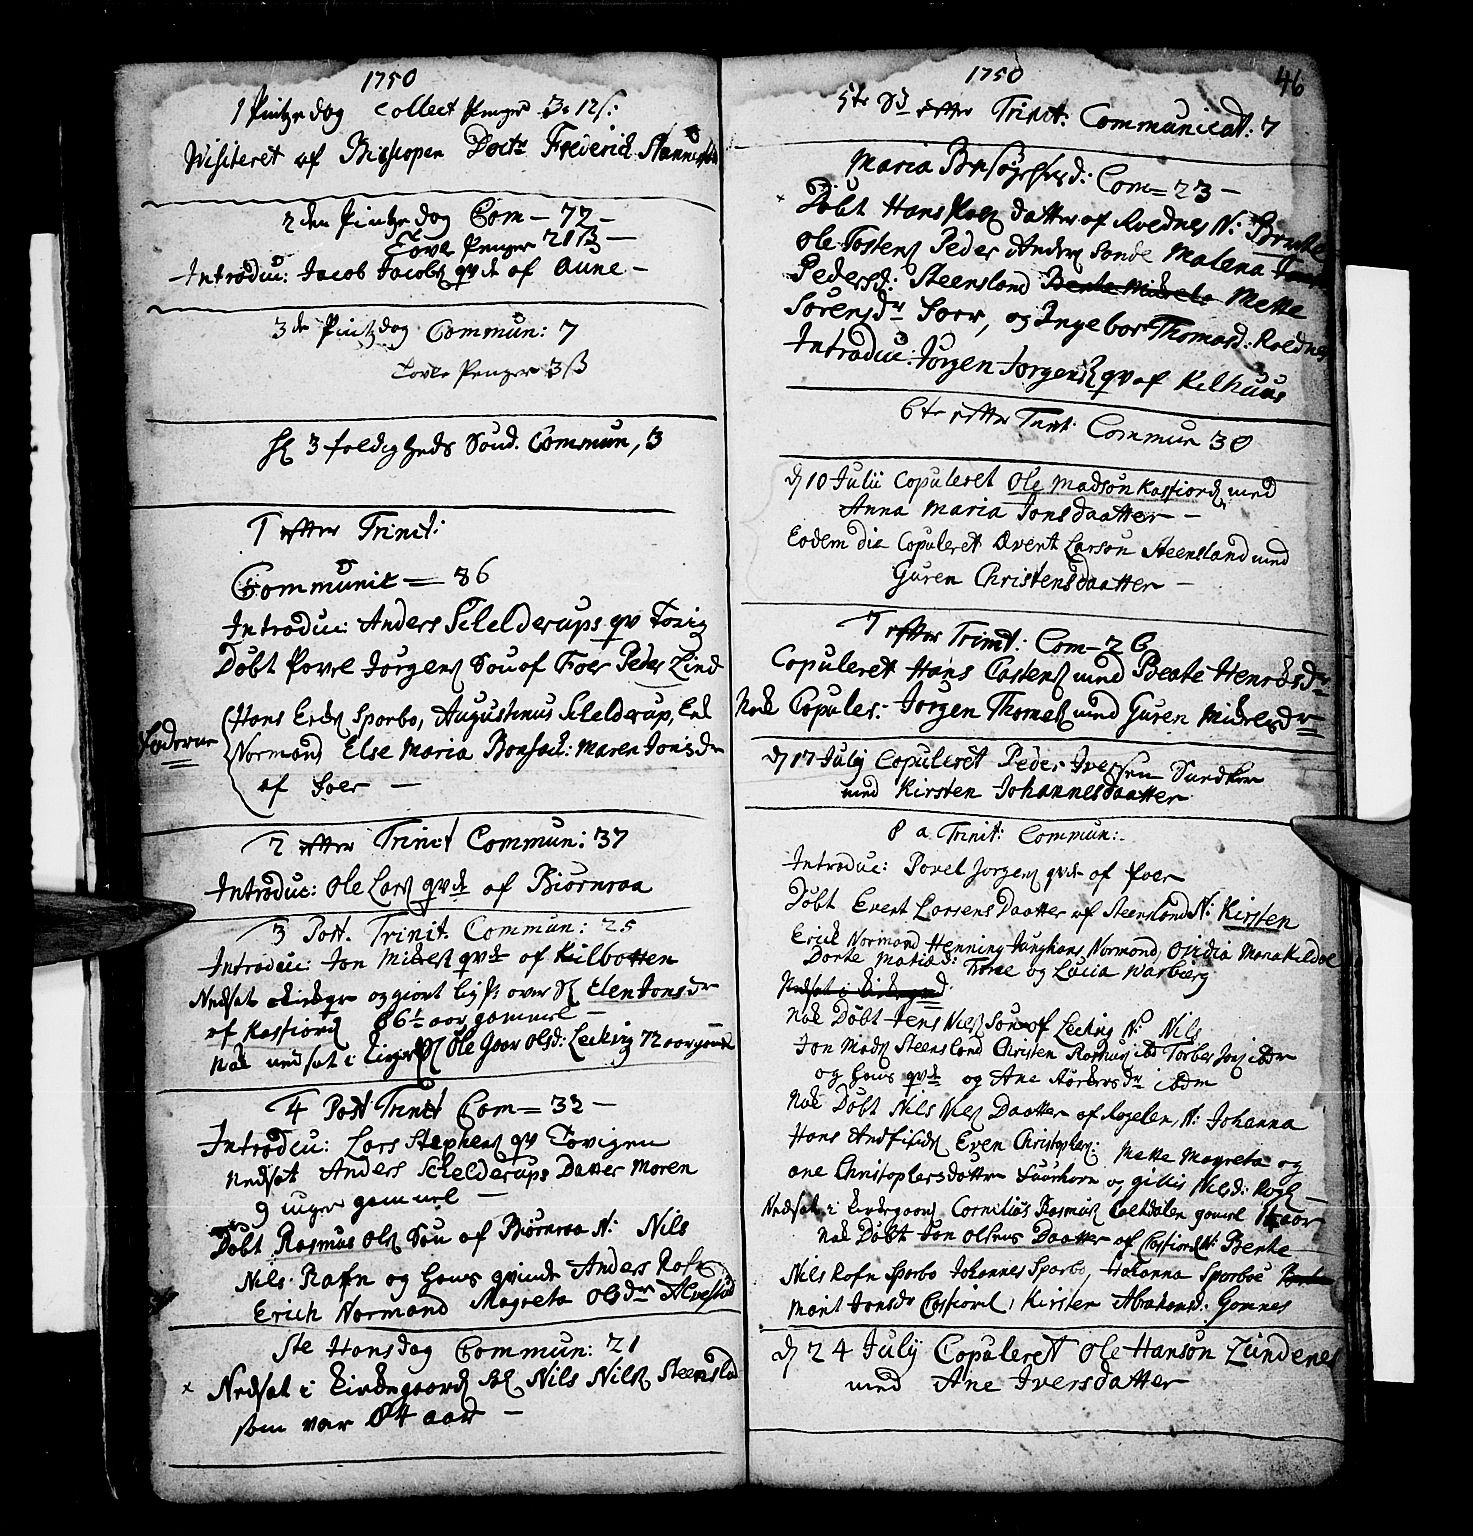 1750
1 Pintzedag Collect Penger 3: 12 s:
Visiteret af Biskopen Doctr Friderich
2den Pintzedag Com — 72 —
Tavle Penger 21 ß —
Introduc: Jacob Jacobs qvde af Aune —
3de Pintzdag Commun: 7
Tavle Penger 3 ß
Hl 3foldigheds Sønd. Commun, 3
1 efter Trinit:
Communic = 86
Introduc: Anders Schelderups qv
Døbt Povel Jørgens Søn af Foer Peder Lind
Fadderne
Hans Erichs Sparbo, Augustinus Schelderup, Erk
Normand Else Maria Bonsach: Maren Jonsdr
af Foer —
2 efter Trinit Commun: 37
Introduc: Ole Lars qvde af Biørnraa
3 Post. Trinit. Commun: 25
Introduc: Jon Michels qvde af Kilbotten
Nedsat og giort ligpr over Sl Elen Jonsdr
af Kasfiord 86½ aar gammel —
Nok nedsat i Sl Ole Goar Olsd: 72 aar gammel
4 Post Trinit Com = 33 —
Introdcu: Lars Stephens qv Tovigen
Nedsat Anders Schelderups Datter Maren
9 uger gammel —
Døbt Rasmus Ols Søn af Biørnraa N: Nils
Nils Rafn og hans qvinde Anders Rafn
Erich Normand Magreta Olsdr
Ste Hansdag Commun: 21
x Nedsat i Kirkegaard Sl Nils Nils Steensland
som var 84 aar —
1750
46
5te Sd efter Trinit: Communicat: 7
Maria Besøgelsesd: Com = 23 —
x Døbt Hans Pols datter af Roednes N: Bereth
Ole Tostens Peder Anders Sande Malena
Pedersd: Steensland Mette
Sørensdr Soor, og Ingebor Thomasd: Roednes
Introduc: Jørgen Jørgens qv af Kilhuus
6te efter Trint: Commun 30
d 10 Julii Copuleret Ole Madsøn Kasfiord med
Anna Maria Jonsdaatter —
Eodem die Copuleret Evert Larsøn Steensland med
Guren Christensdaatter —
7 efter Trinit: Com — 26
Copuleret Hans Castens med Beate Henrichsdr
Nok Copuler: Jørgen Thomes med Guren Michelsdr
d 17 July Copuleret Peder Iversen
med Kirsten Johannesdaatter
8 a Trinit: Commun:
Introduc: Povel Jørgens qvde af Foer
Døbt Evert Larsens Daatter af Steensland N: Kirsten
Erich Normand Henning Junghans Normand, Ovidia Maria Kildal
Dorte Matiad: og Lucia Warberg
Nedsat i Kirkegaard
Nok Døbt Jens Nils Søn af N: Nils
Jon Mads Steensland Christen Rasmus ibd Torber Jons ibdm
og hans qvde og Ane ibdm
Nok Døbt Nils Nils Daatter af Rogelen, N: Johanna
Hans Andfinds Even Christophers: Mette Magreta og
Ane Christophersdatter og Gillis Nilsd:
Nedsat i Kirkegaard Cornelius Rasmus gamel 14 aar
Nok Døbt Jon Olsens Daatter af Casfiord N: Berete
Nils Rafn Sparbo Johannes Sparbo, Johanna Sparboe
Marit Jonsdr Casfiord, Kirsten Abahamsd: Gomnes
d 24 July Copuleret Ole Hansøn Lundenes
med Ane Iversdatter